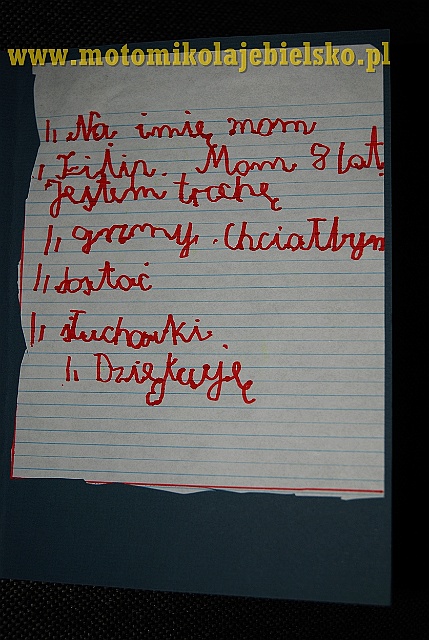 www.motomikolajebielsko.pl
Na imię mam
Filip. Mam 8 lat.
Jestem trochę
grzeczny. Chciałbym
dostać
słuchawki.
Dziękuję